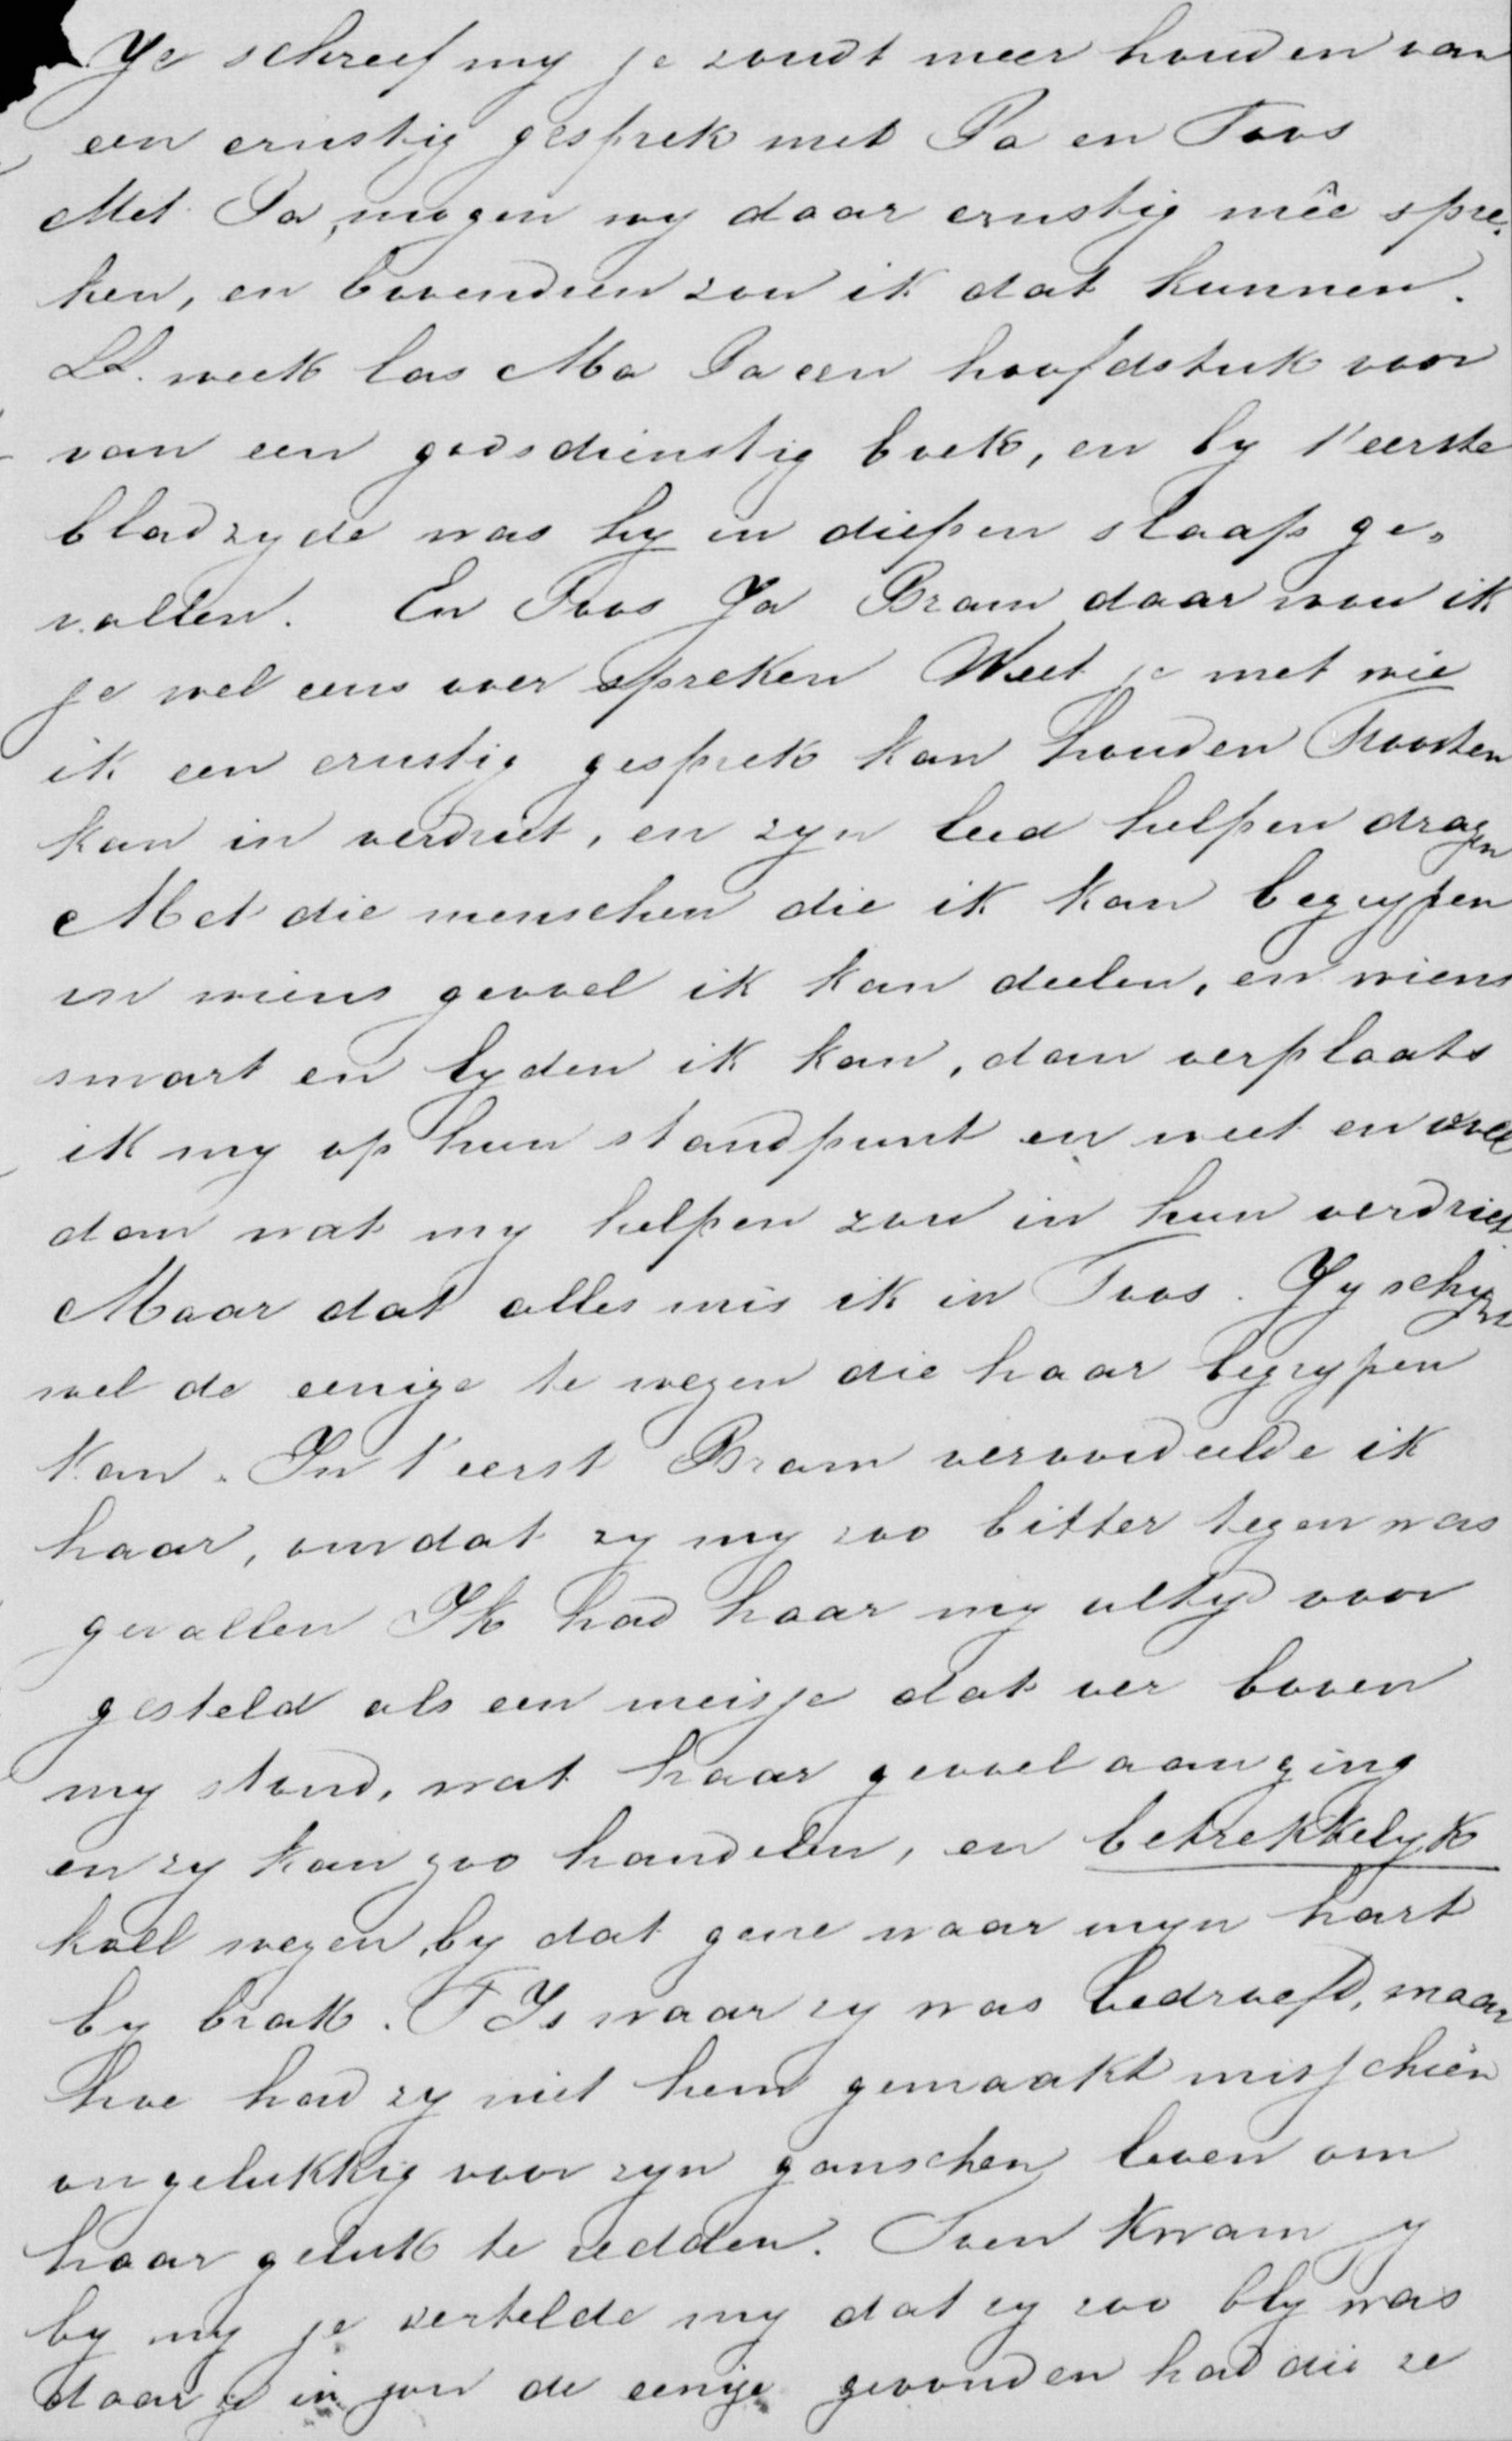 Ye schreef my je zoudt meer houden van
een ernstig gesprek met Pa en Toos
Met Pa, mogen wy daar ernstig mêe spre-
ken, en bovendien zou ik dat kunnen.
LL. week las Ma Pa een hoofdstuk voor
van een godsdienstig boek, en by 't eerste
bladzyde was hy in diepen slaap ge-
vallen. En Toos Ja Bram daar wou ik
je wel eens over spreken Weet je met wie
ik een ernstig gesprek kan houden Troosten
kan in verdriet, en zyn leed helpen dragen
Met die menschen die ik kan begrypen
in wiens gevoel ik kan deelen, en wiens
smart en lyden ik kan, dan verplaats
ik my op hun standpunt en weet en voel
dan wat my helpen zou in hun verdriet
Maar dat alles mis ik in Toos. Jy schynt
wel de eenige te wezen die haar begrypen
kan. In 't eerst Bram veroordeelde ik
haar, omdat zy my zoo bitter tegen was
gevallen Ik had haar my altyd voor
gesteld als een meisje dat ver boven
my stond, wat haar gevoel aanging
en zy kan zoo handelen, en betrekkelyk
koel wezen, by dat gene waar myn hart
by brak. T Is waar zy was bedroefd, maar
hoe had zy niet hem gemaakt misschien
ongelukkig voor zyn ganschen leven om
haar geluk te redden. Toen kwam jy
by my je vertelde my dat zy zoo bly was
daar ze in jou de eenige gevonden had die ze